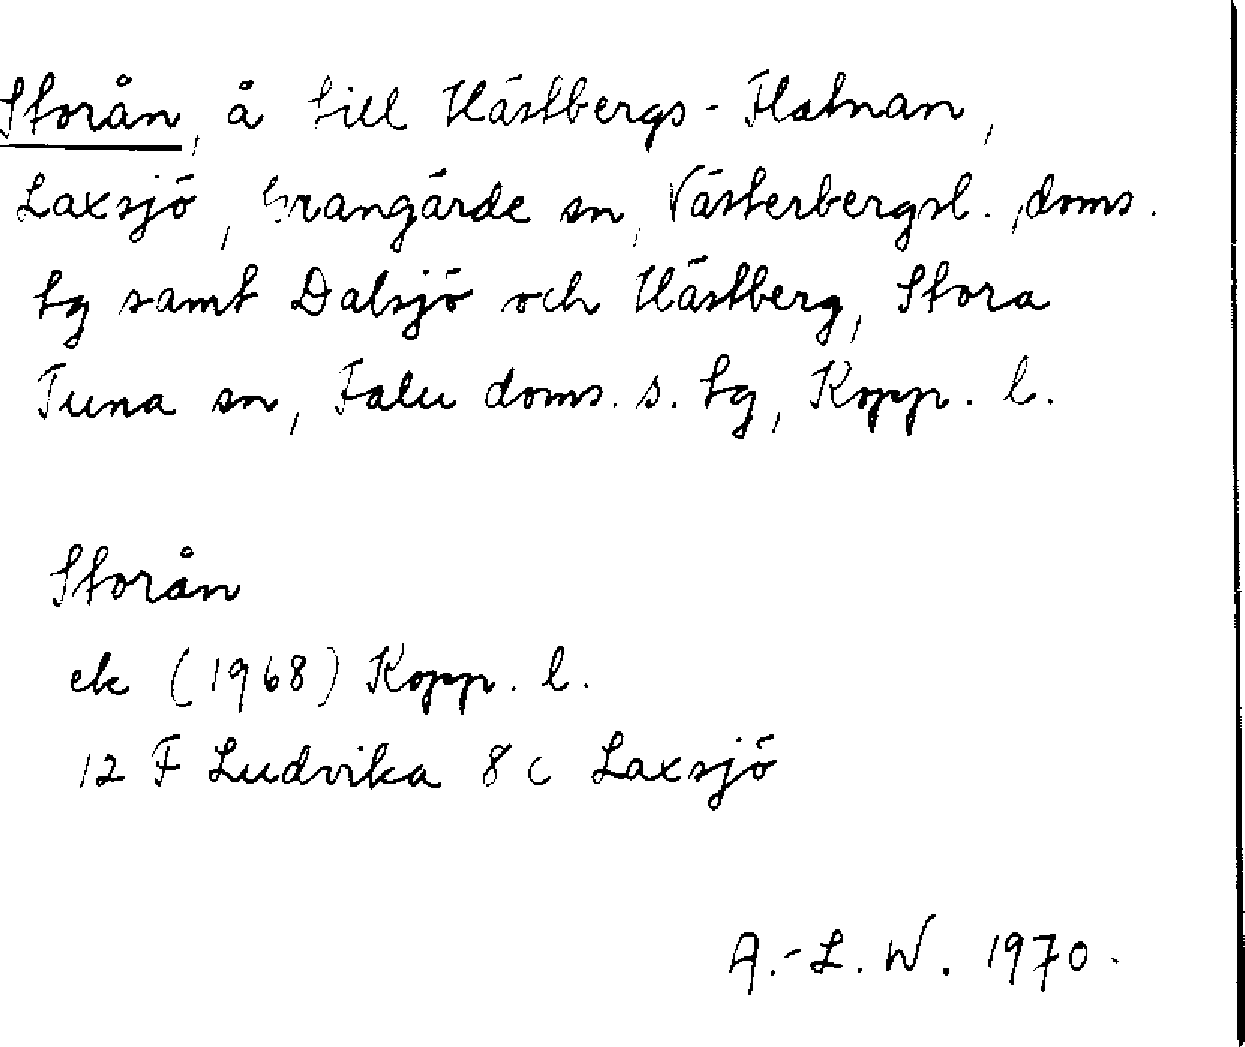 Storån, å till Hästbergs-Flatnan,
Laxsjö, Grangärde sn, Västerbergsl., doms.
tg samt Dalsjö och Hästberg, Stora
Tuna sn, Falu doms. s. tg, Kopp. l.
Storån
ek (1968) Kopp. l.
12 F Ludvika 8 c Laxsjö
A.-L. W. 1970.